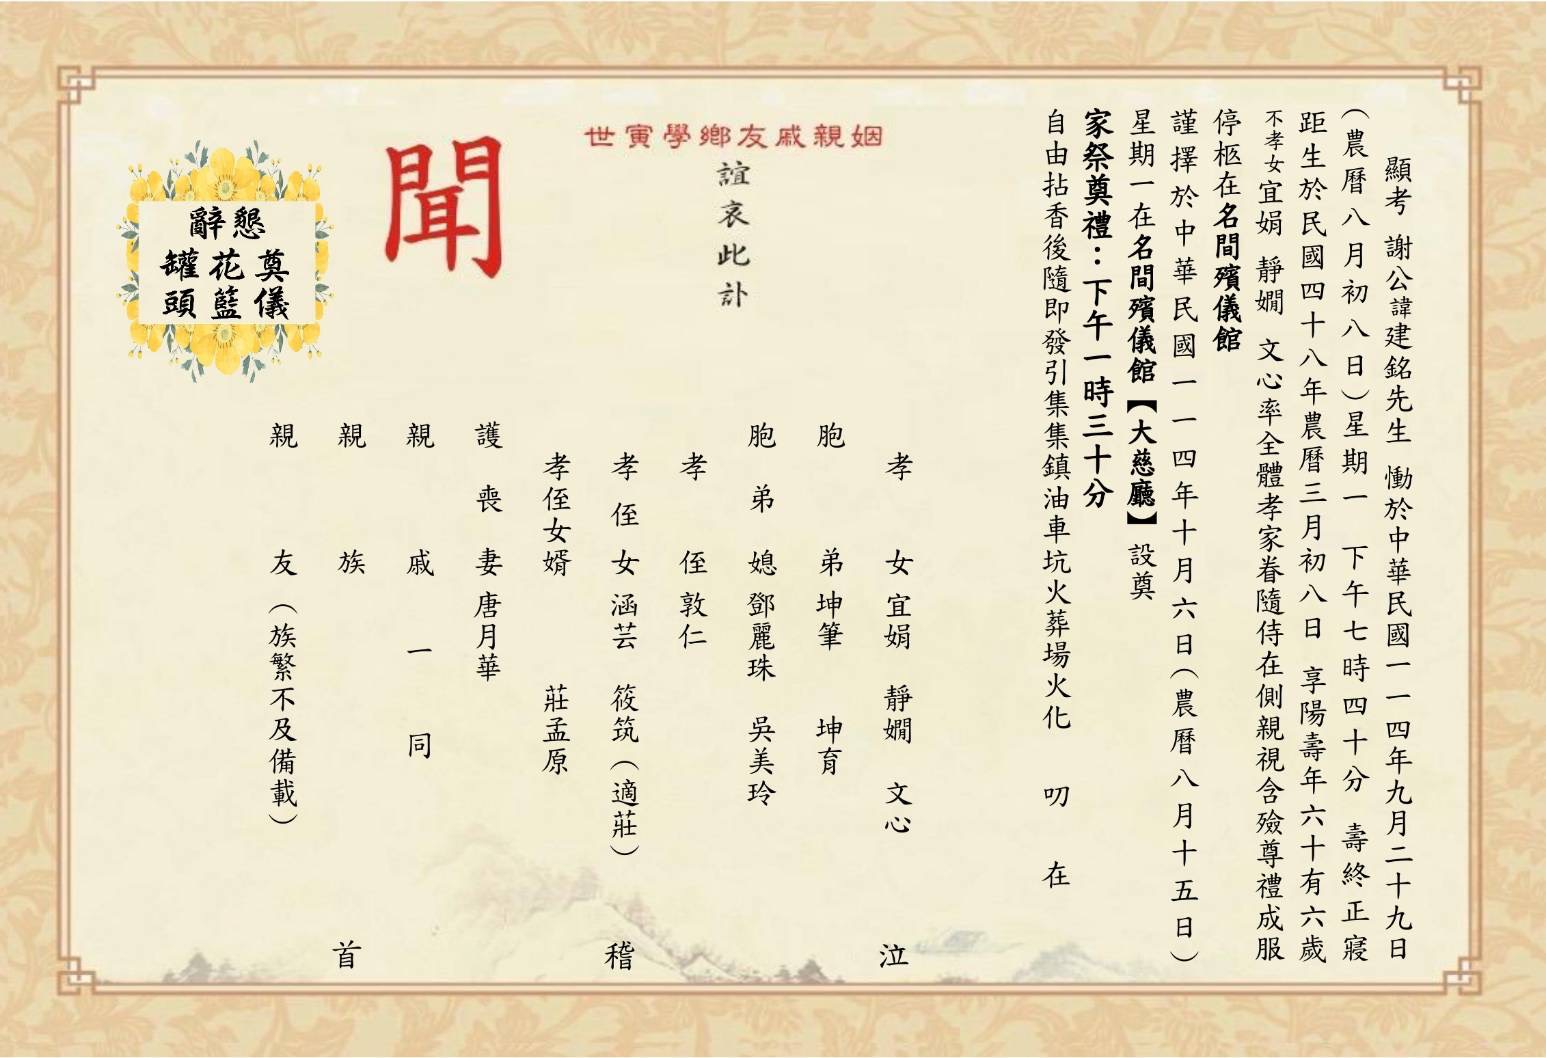 顯考 謝公諱建銘先生 慟於中華民國一一四年九月二十九日
(農曆八月初八日)星期一 下午七時四十分 壽終正寢
距生於民國四十八年農曆三月初八日 享陽壽年六十有六歲
不孝女宜娟 靜嫺 文心率全體孝家眷隨侍在側親視含殮尊禮成服
停柩在名間殯儀館
謹擇於中華民國一一四年十月六日(農曆八月十五日)
星期一在名間殯儀館【大慈廳】設奠
家祭奠禮：下午一時三十分
自由拈香後隨即發引集集鎮油車坑火葬場火化 叨在
姻親戚友鄉學寅世
誼哀此訃
聞
孝女宜娟 靜嫺 文心
胞弟坤筆 坤育
胞弟媳鄧麗珠 吳美玲
孝侄敦仁
孝侄女涵芸 筱筑(適莊)
孝侄女婿 莊孟原
護喪妻唐月華
親戚一同
親族
親友(族繁不及備載)
泣
稽
首
懇辭
奠儀
花籃
罐頭